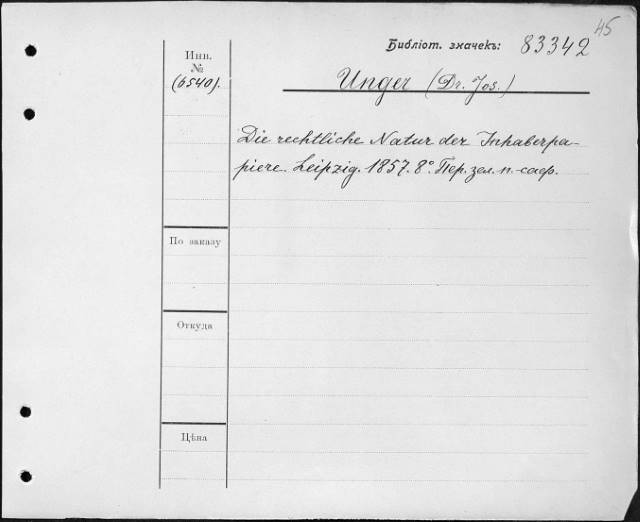 45
Библіот. значекъ: 83342
Инв.
№
(6540).
Unger (Dr. Jos.)
Die rechtliche Natur der Inhaberpa-
piere. Leipzig. 1857. 8º. Пер. зел. п.-саф.
По заказу
Откуда
Цѣна